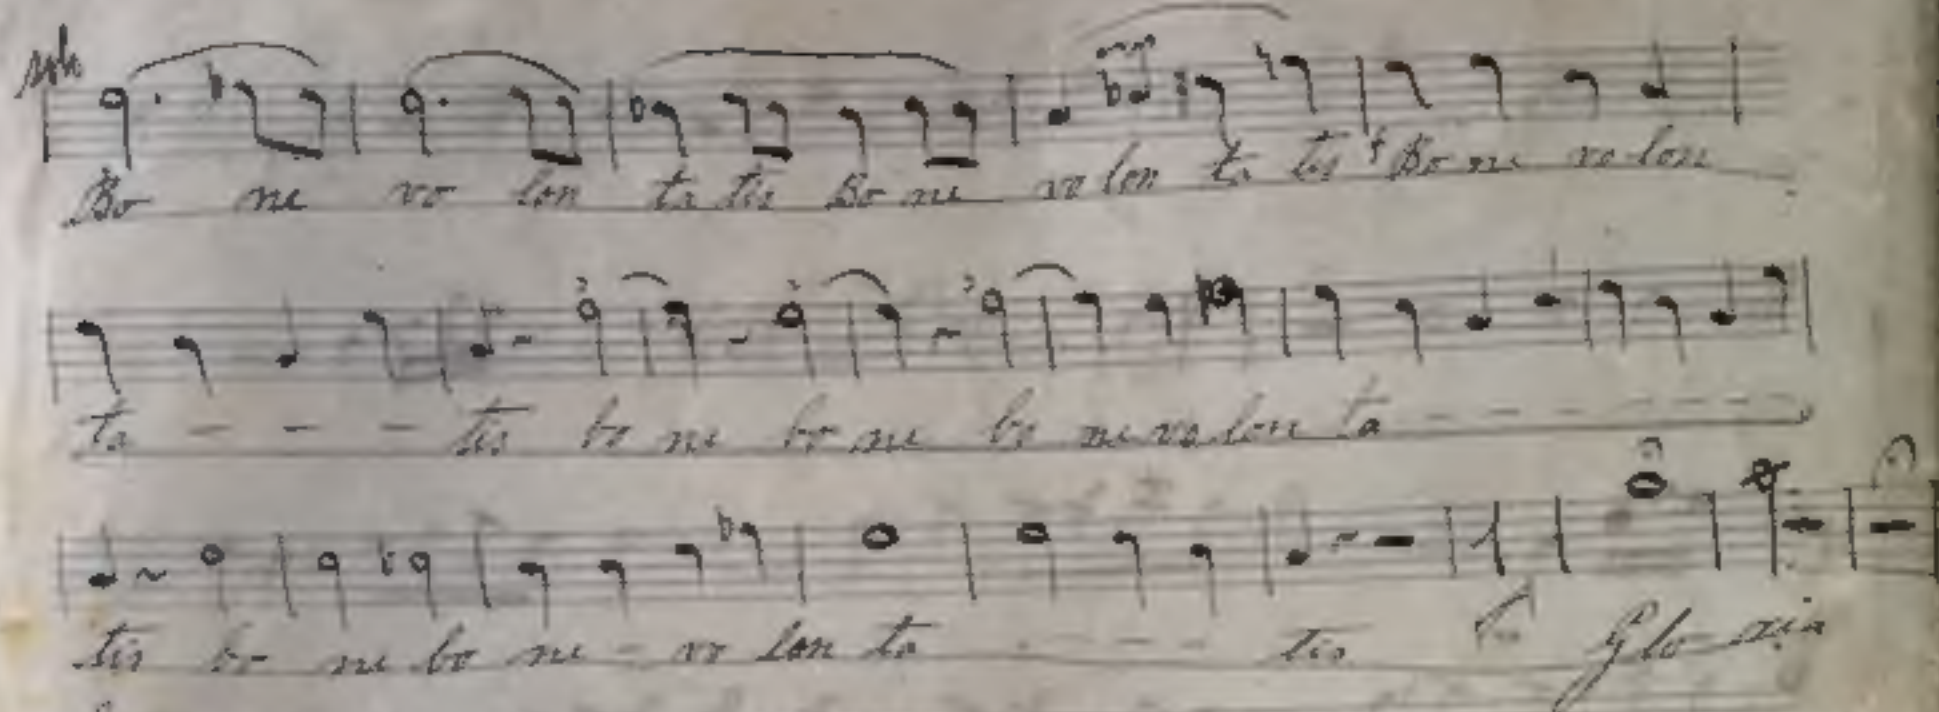 Bo ne vo lon ta tis Bo ne vo lon ta tis Bo ne vo lon
ta - - - tis bo ne bo ne bo ne vo lon ta - - - - - - -
tis bo ne bo ne - vo lon ta - - - - tis Glo ria